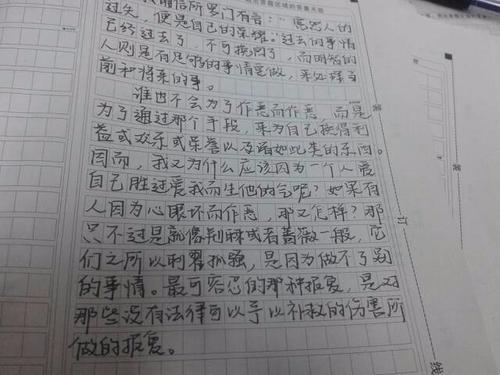 我相信所罗门有言：“宽恕人的
过失，便是自己的荣耀。”过去的事情
已经过去了，不可挽回了，而明智的
人则是有足够的事情要做，来处理当
前和将来的事。
谁也不会为了作恶而作恶，而是
为了通过那个手段，来为自己换得利
益或欢乐或荣誉以及诸如此类的东西。
因而，我又为什么应该因为一个人爱
自己胜过爱我而生他的气呢？如果有
人因为心眼坏而作恶，那又怎样？那
只不过是就像荆棘或者蔷薇一般，它
们之所以刺
的事情。最可容忍的那种报复，是对
那些没有法律可以予以补救的伤害所
做的报复。
订
线